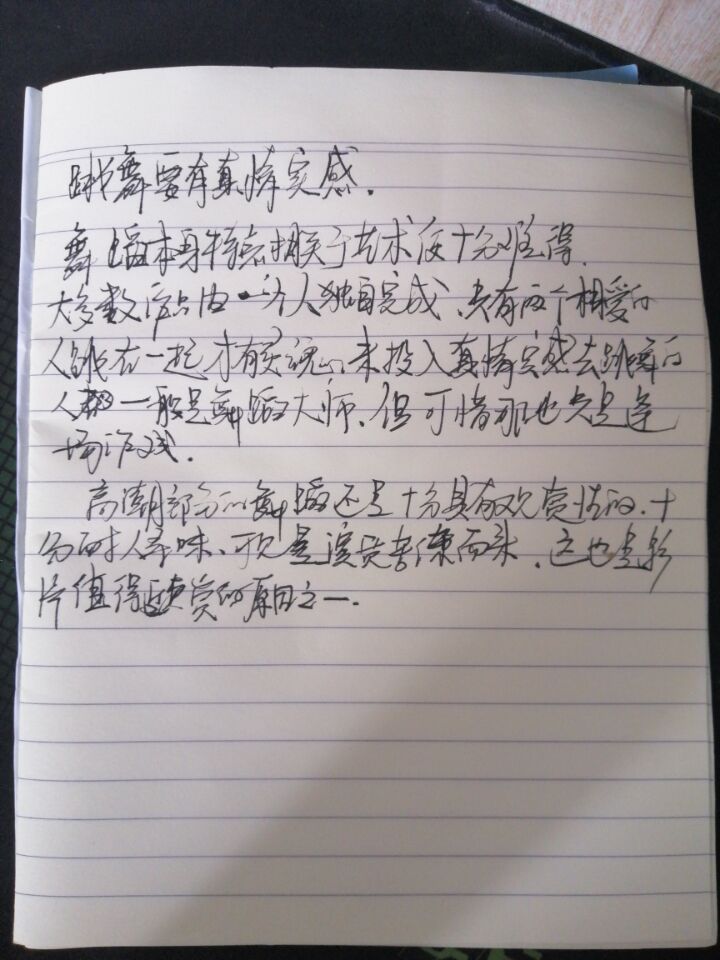 跳舞要有真情实感.
舞蹈本身牺牲于艺术后十分难得.
大多数作品由一个人独自完成、只有两个相爱的
人跳在一起才有灵魂、来投入真情实感去跳舞的
人都一般是舞蹈大师、但可惜那也只是逢
场作戏.
高潮部分的舞蹈还是十分具有观赏性的.十
分耐人寻味、可见是演员苦练而来、这也是影
片值得赞赏的原因之一.